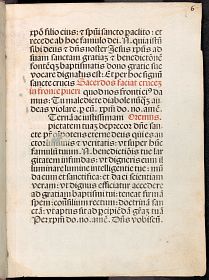 6
xpo filio eius: ⁊ spūi sancto paclito: et
recede ab hoc famulo dei. N. quia istū
sibi deus ⁊ dn̄s noster Jesus xp̄us ad
suam sanctam gratiam ⁊ benedictiōnē
fontēq; baptismatis dono gratie sue
vocare dignatus est: Et per hoc signū
sancte crucis Sacerdos faciat crucē
in fronte pueri quod nos fronti eiꝰ da
mus: Tu maledicte diabole nūq; au
deas violare. p eū. xp̄m. do. no. amē.
Terna ac iustissimam Oremus.
pietatem tuam deprecor: dn̄e san
cte pr̄ oīpotens eterne deus qui es au
ctor luminis ⁊ veritatis: vt super hūc
famulū tuum. N. benedictiōis tue lar
gitatem infundas: vt digneris eum il
luminare lumine intelligentie tue: mū
da eum et sanctifica: et da ei scientiam
veram: vt dignus efficiatur accedere
ad gratiam baptismi tui: teneat firmā
spem: consilium rectum: doctrinā san
ctā: vt aptus sit ad pcipiēdā grāz tuā
Per xp̄m do. no. amē. Dn̄s vobiscū.